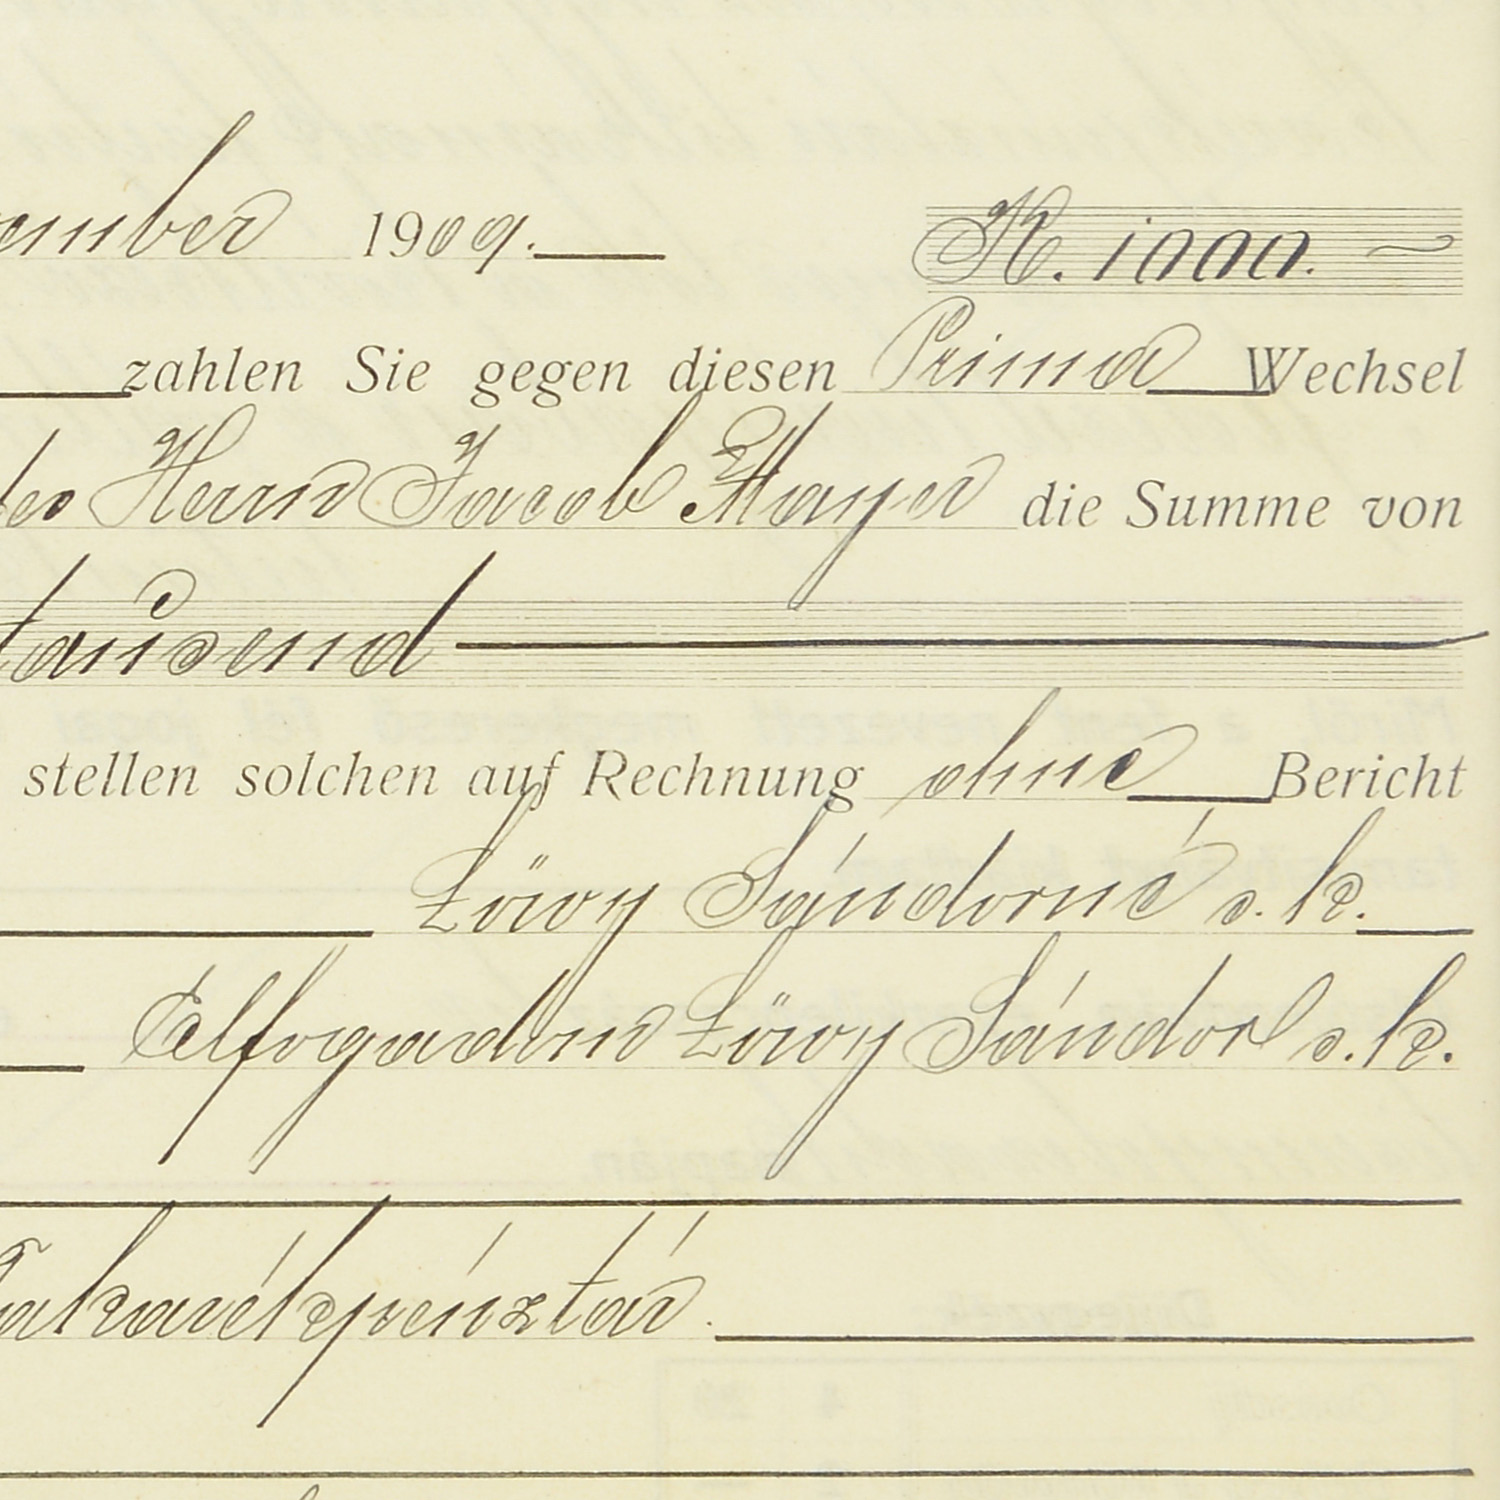 ember 1909.
K. 1000.~
zahlen Sie gegen diesen Prima Wechsel
des Herrn Jacob Mayer die Summe von
tausend
stellen solchen auf Rechnung ohne Bericht
Löwy Sándorné s. k.
Elfogadom Löwy Sándor s. k.
Takarékpénztár.